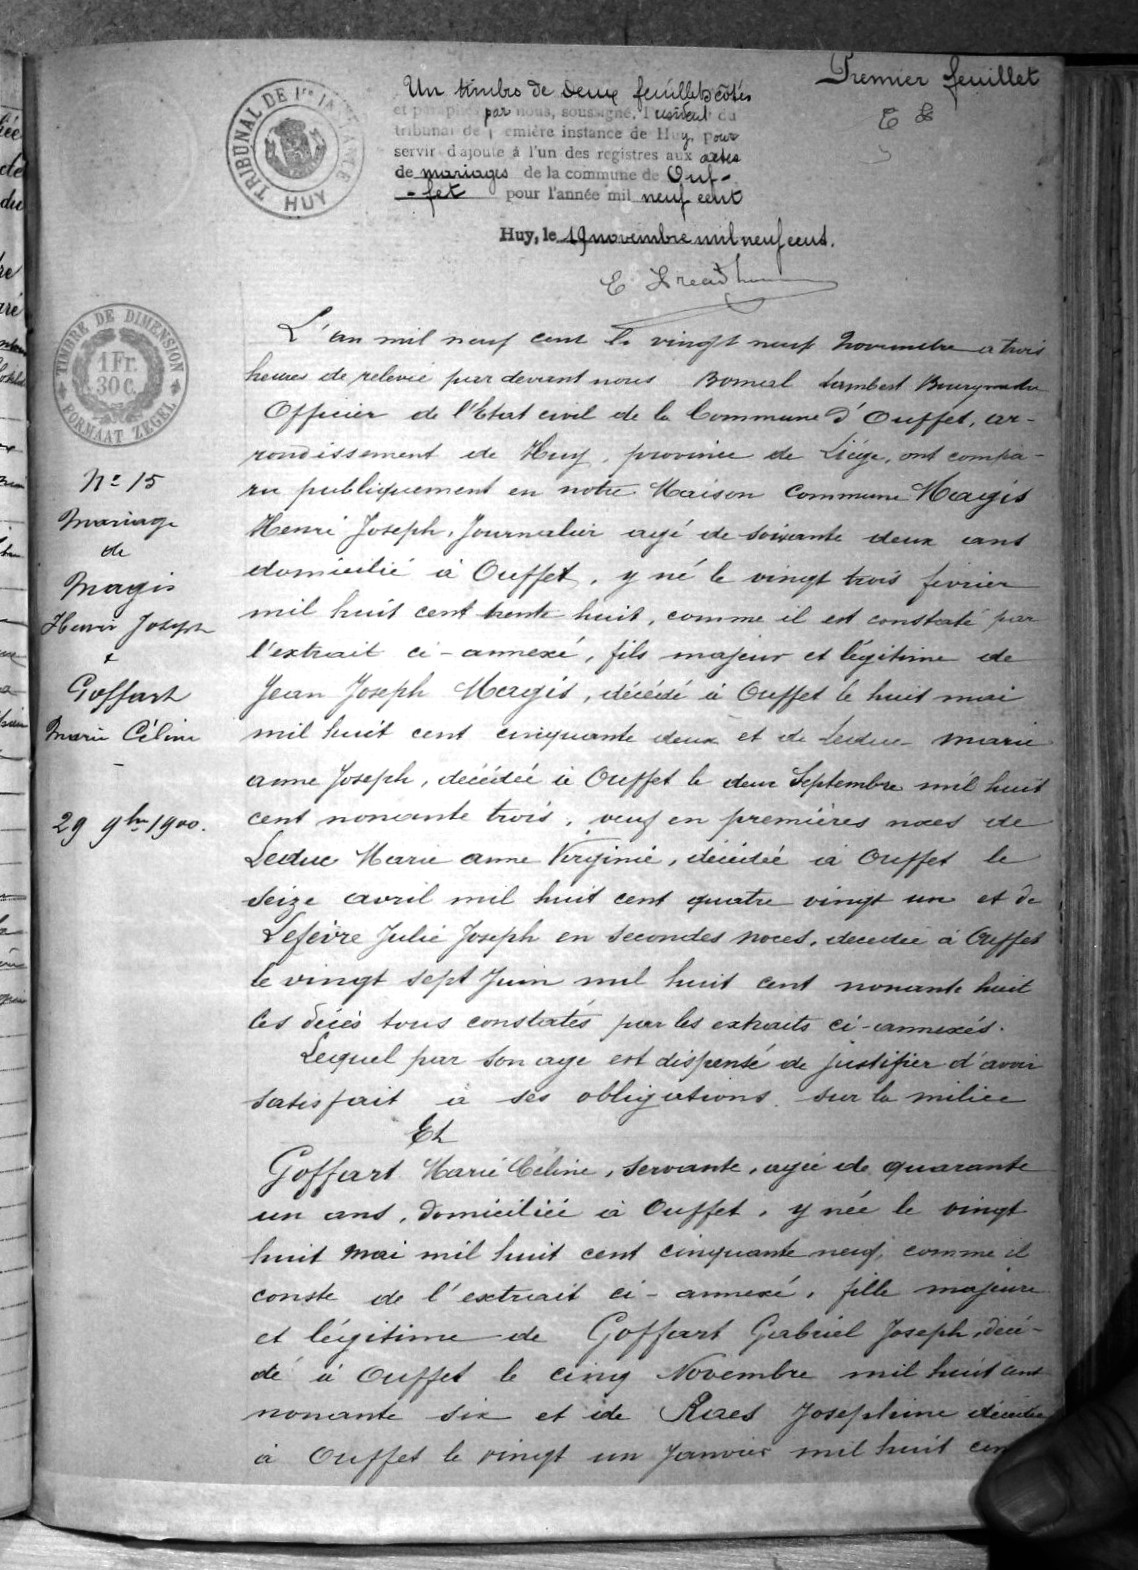 Premier feuillet
Un timbre de deux feuillets côtés
et paraphé par nous, soussigné, Président du
tribunal de première instance de Huy, pour
servir d'ajoute à l'un des registres aux actes
de mariages de la commune de Ouf-
-fet pour l'année mil neuf cent
Huy, le 19 novembre mil neuf cent.
TRIBUNAL DE 1re INSTANCE
HUY
TIMBRE DE DIMENSION
1 Fr.
30 C.
FORMAAT ZEGEL
No 15
Mariage
de
Magis
Henri Joseph
&
Goffart
Marie Céline
29 9bre 1900.
L'an mil neuf cent le vingt neuf Novembre a trois
heures de relevée par devant nous Bomal Lambert Bourgmestre
Officier de l'Etat civil de la Commune d'Ouffet, ar-
rondissement de Huy, province de Liége, ont compa-
ru publiquement en notre Maison Commune Magis
Henri Joseph, Journalier agé de soixante deux ans
domicilié à Ouffet, y né le vingt trois février
mil huit cent trente huit, comme il est constaté par
l'extrait ci-annexé, fils majeur et légitime de
Jean Joseph Magis, décédé à Ouffet le huit mai
mil huit cent cinquante deux et de Leduc Marie
anne Joseph, décédée à Ouffet le deux Septembre mil huit
cent nonante trois, veuf en premières noces de
Leduc Marie anne Virginie, décédée à Ouffet le
seize avril mil huit cent quatre vingt un et de
Lefèvre Julie Joseph en secondes noces, decedée à Ouffet
le vingt sept Juin mil huit cent nonante huit
les décès tous constatés par les extraits ci-annexés.
Lequel par son age est dispensé de justifier d'avoir
satisfait à ses obligations sur la milice
Et
Goffart Marie Céline, servante, agée de quarante
un ans, domiciliée à Ouffet, y née le vingt
huit Mai mil huit cent cinquante neuf, comme il
conste de l'extrait ci-annexé, fille majeure
et légitime de Goffart Gabriel Joseph, décé-
dé à Ouffet le cinq Novembre mil huit cent
nonante six et de Raes Josephine décédée
à Ouffet le vingt un Janvier mil huit cent